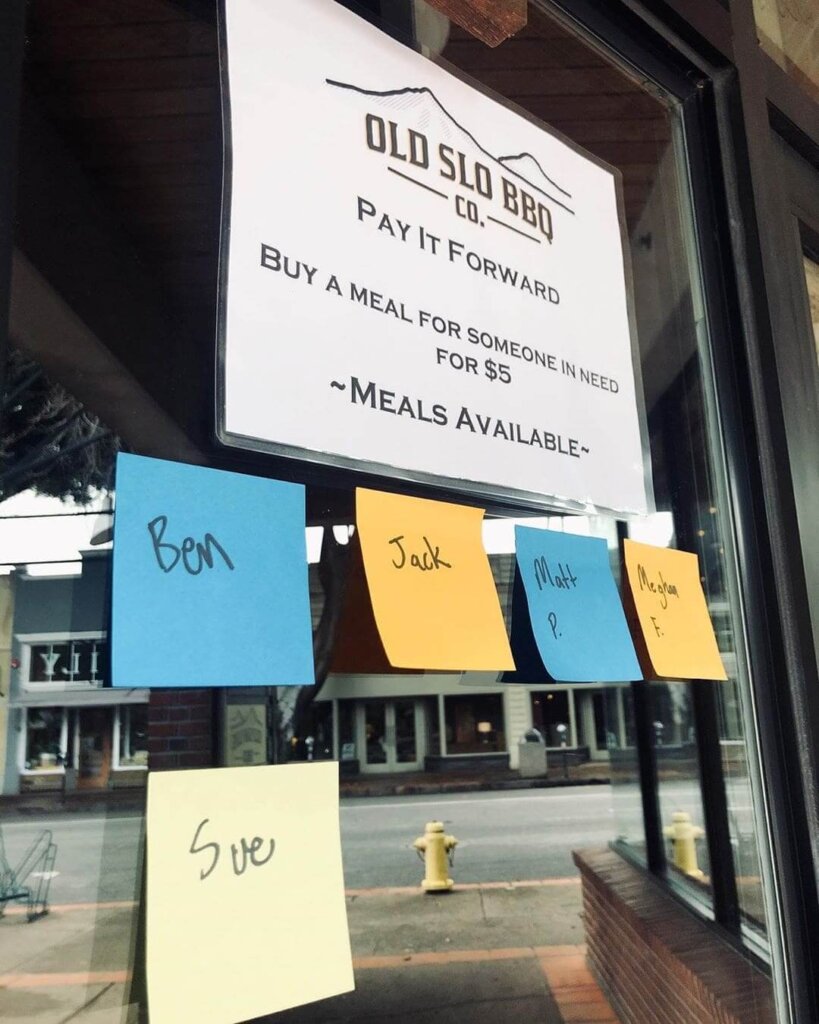 OLD SLO BBQ
CO.
PAY IT FORWARD
BUY A MEAL FOR SOMEONE IN NEED
FOR $5
~MEALS AVAILABLE~
Ben
Jack
Matt
P.
Meghan
F.
Sue